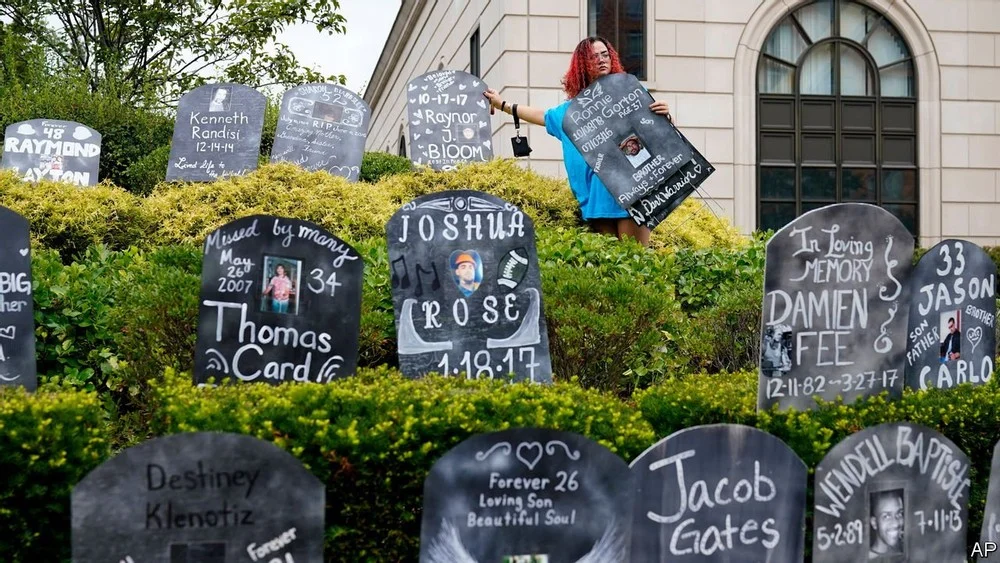 48
RAYMOND
LAYTON
Kenneth
Randisi
12-14-14
Loved Life to
R.I.P
10-17-17
Raynor
J.
BLOOM
Ronnie Gorton
BROTHER
Always + Forever
BIG
Missed by many
May
26
2007
34
Thomas
Card
JOSHUA
ROSE
1-18-17
In Loving
MEMORY
DAMIEN
FEE
12-11-82 ~ 3-27-17
33
JASON
SON
BROTHER
FATHER
CARLO
Destiney
Klenotiz
Forever
Forever 26
Loving Son
Beautiful Soul
Jacob
Gates
WENDELL BAPTISTE
5-2-89
7-11-13
AP